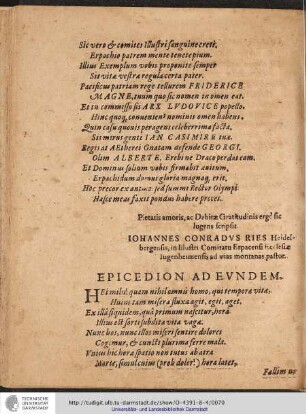 Sic vero & comites Illustri sanguine creti,
Erpachio patrem mente tenete pium.
Illius Exemplum vobis proponite semper
Sit vitæ vestræ regula certa pater.
Pacificus patriam rege tellurem FRIDERICE
MAGNE, tuum quo sic nomen in omen eat.
Et tu commisso sis ARX LVDOVICE popello.
Hinc quoq; conveniens nominis omen habens.
Quin casu quovis peragens celeberrima facta,
Sis meras gentis IAN CASIMIRE tuæ.
Regis at Aetherei Gnatam defende GEORGI,
Olim ALBERTE, Erebi ne Draco perdat eam.
Et Dominus solium vobis firmabit avitum,
Erpachidum domus gloria magna, erit.
Hoc precor exanimo: sed summi Rector Olympi
Hasce meas faxit pondus habere preces.
Pietatis amoris, ac Debitæ Gratitudinis ergò sic
lugens scripsit
IOHANNES CONRADVS RIES Heidel-
bergensis, in Illustri Comitatu Erpacensi Ecclesiæ
Iugenheimensis ad vias montanas pastor.
EPICEDION AD EVNDEM.
HEi mihi! quam nihil omnis homo, qui tempora vitæ,
Huius tam misera fluxa agit, egit, aget,
Ex illa siquidem, quâ primum nascitur, hora
Illius est sorti subdita vita vaga.
Nunc hos, nunc illos miseri sentire dolores
Cogimur, & cuncti plurima ferre mala.
Unius hic hora spatio non tutus ab atra
Morte, simul cuius (proh dolor!) hora latet.
Fallimur
TECHNISCHE
UNIVERSITÄT
DARMSTADT
http://tudigit.ulb.tu-darmstadt.de/show/O-4391-8-4/0070
Universitäts- und Landesbibliothek Darmstadt